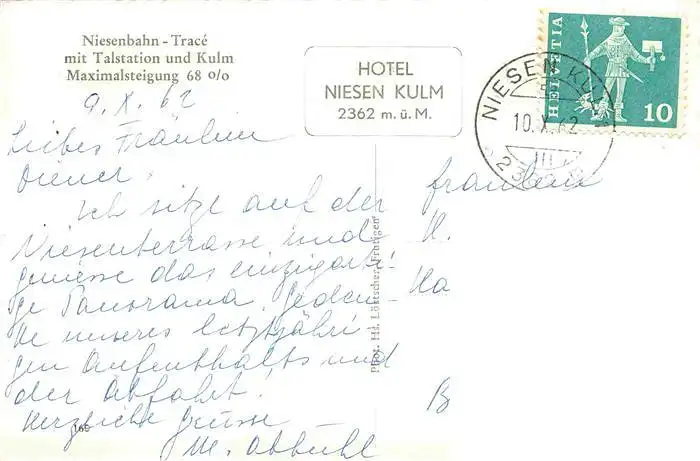 Niesenbahn - Tracé
mit Talstation und Kulm
Maximalsteigung 68 o/o
HOTEL
NIESEN KULM
2362 m. ü. M.
HELVETIA
10
NIESEN KULM
10.X.62
9. X. 62
Liebes Fräulein
Diener,
Ich sitze auf der
Niesenterrasse und
geniesse das einzigarti-
ge Panorama. Geden-
ke unseres letztjähri-
gen Aufenthalts und
der Abfahrt!
Herzliche Grüsse
M. Abbühl
Fräulein
H.
Ha
B
Phot. Hd. Lötscher, Frutigen
166